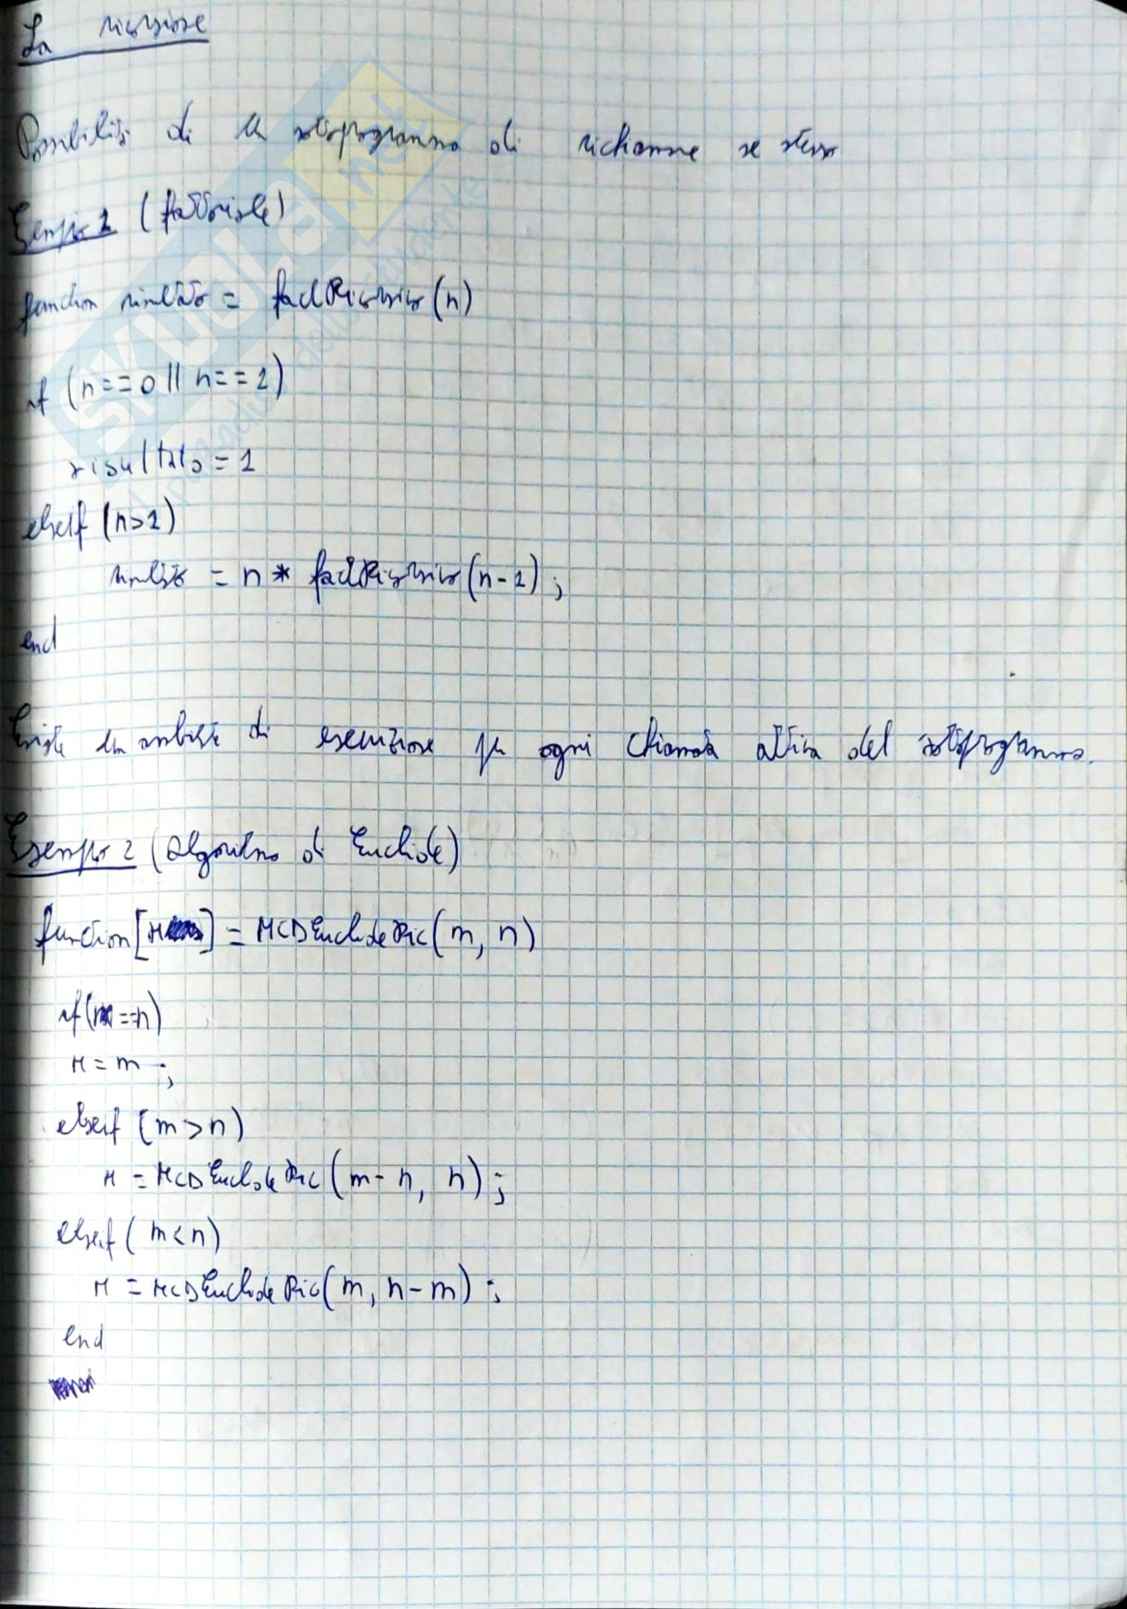 La ricorsione
Possibilità di un sottoprogramma di richiamare se stesso
Esempio 1 (fattoriale)
function risultato = factRicorsivo(n)
if (n==0 || n==1)
risultato = 1
elseif (n>1)
risultato = n * factRicorsivo(n-1);
end
Esiste un ambiente di esecuzione per ogni chiamata attiva del sottoprogramma.
Esempio 2 (algoritmo di Euclide)
function [M] = MCDEuclideRic(m, n)
if(m==n)
M = m ;
elseif (m>n)
M = MCDEuclideRic(m-n, n);
elseif (m<n)
M = MCDEuclideRic(m, n-m);
end
SKUOLA.net